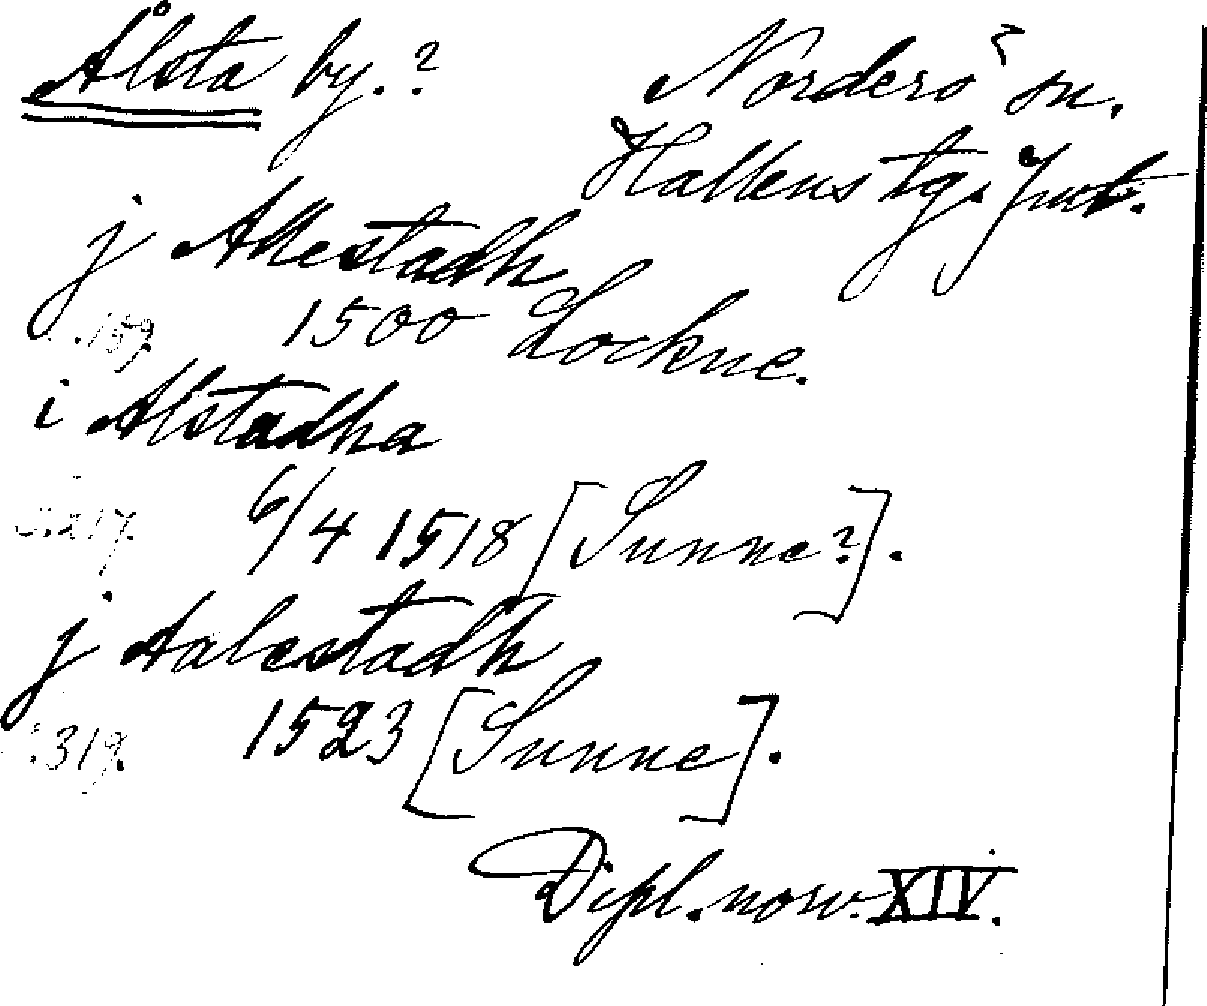 Ålsta by.?
Norderö sn.
Hallens tg. Jmt.
j Allestadh
s.159. 1500 Lockne.
i Alstadha
s.217. 6/4 1518 [Sunne?].
j Aalestadh
s.319. 1523 [Sunne].
Dipl. norv. XIV.